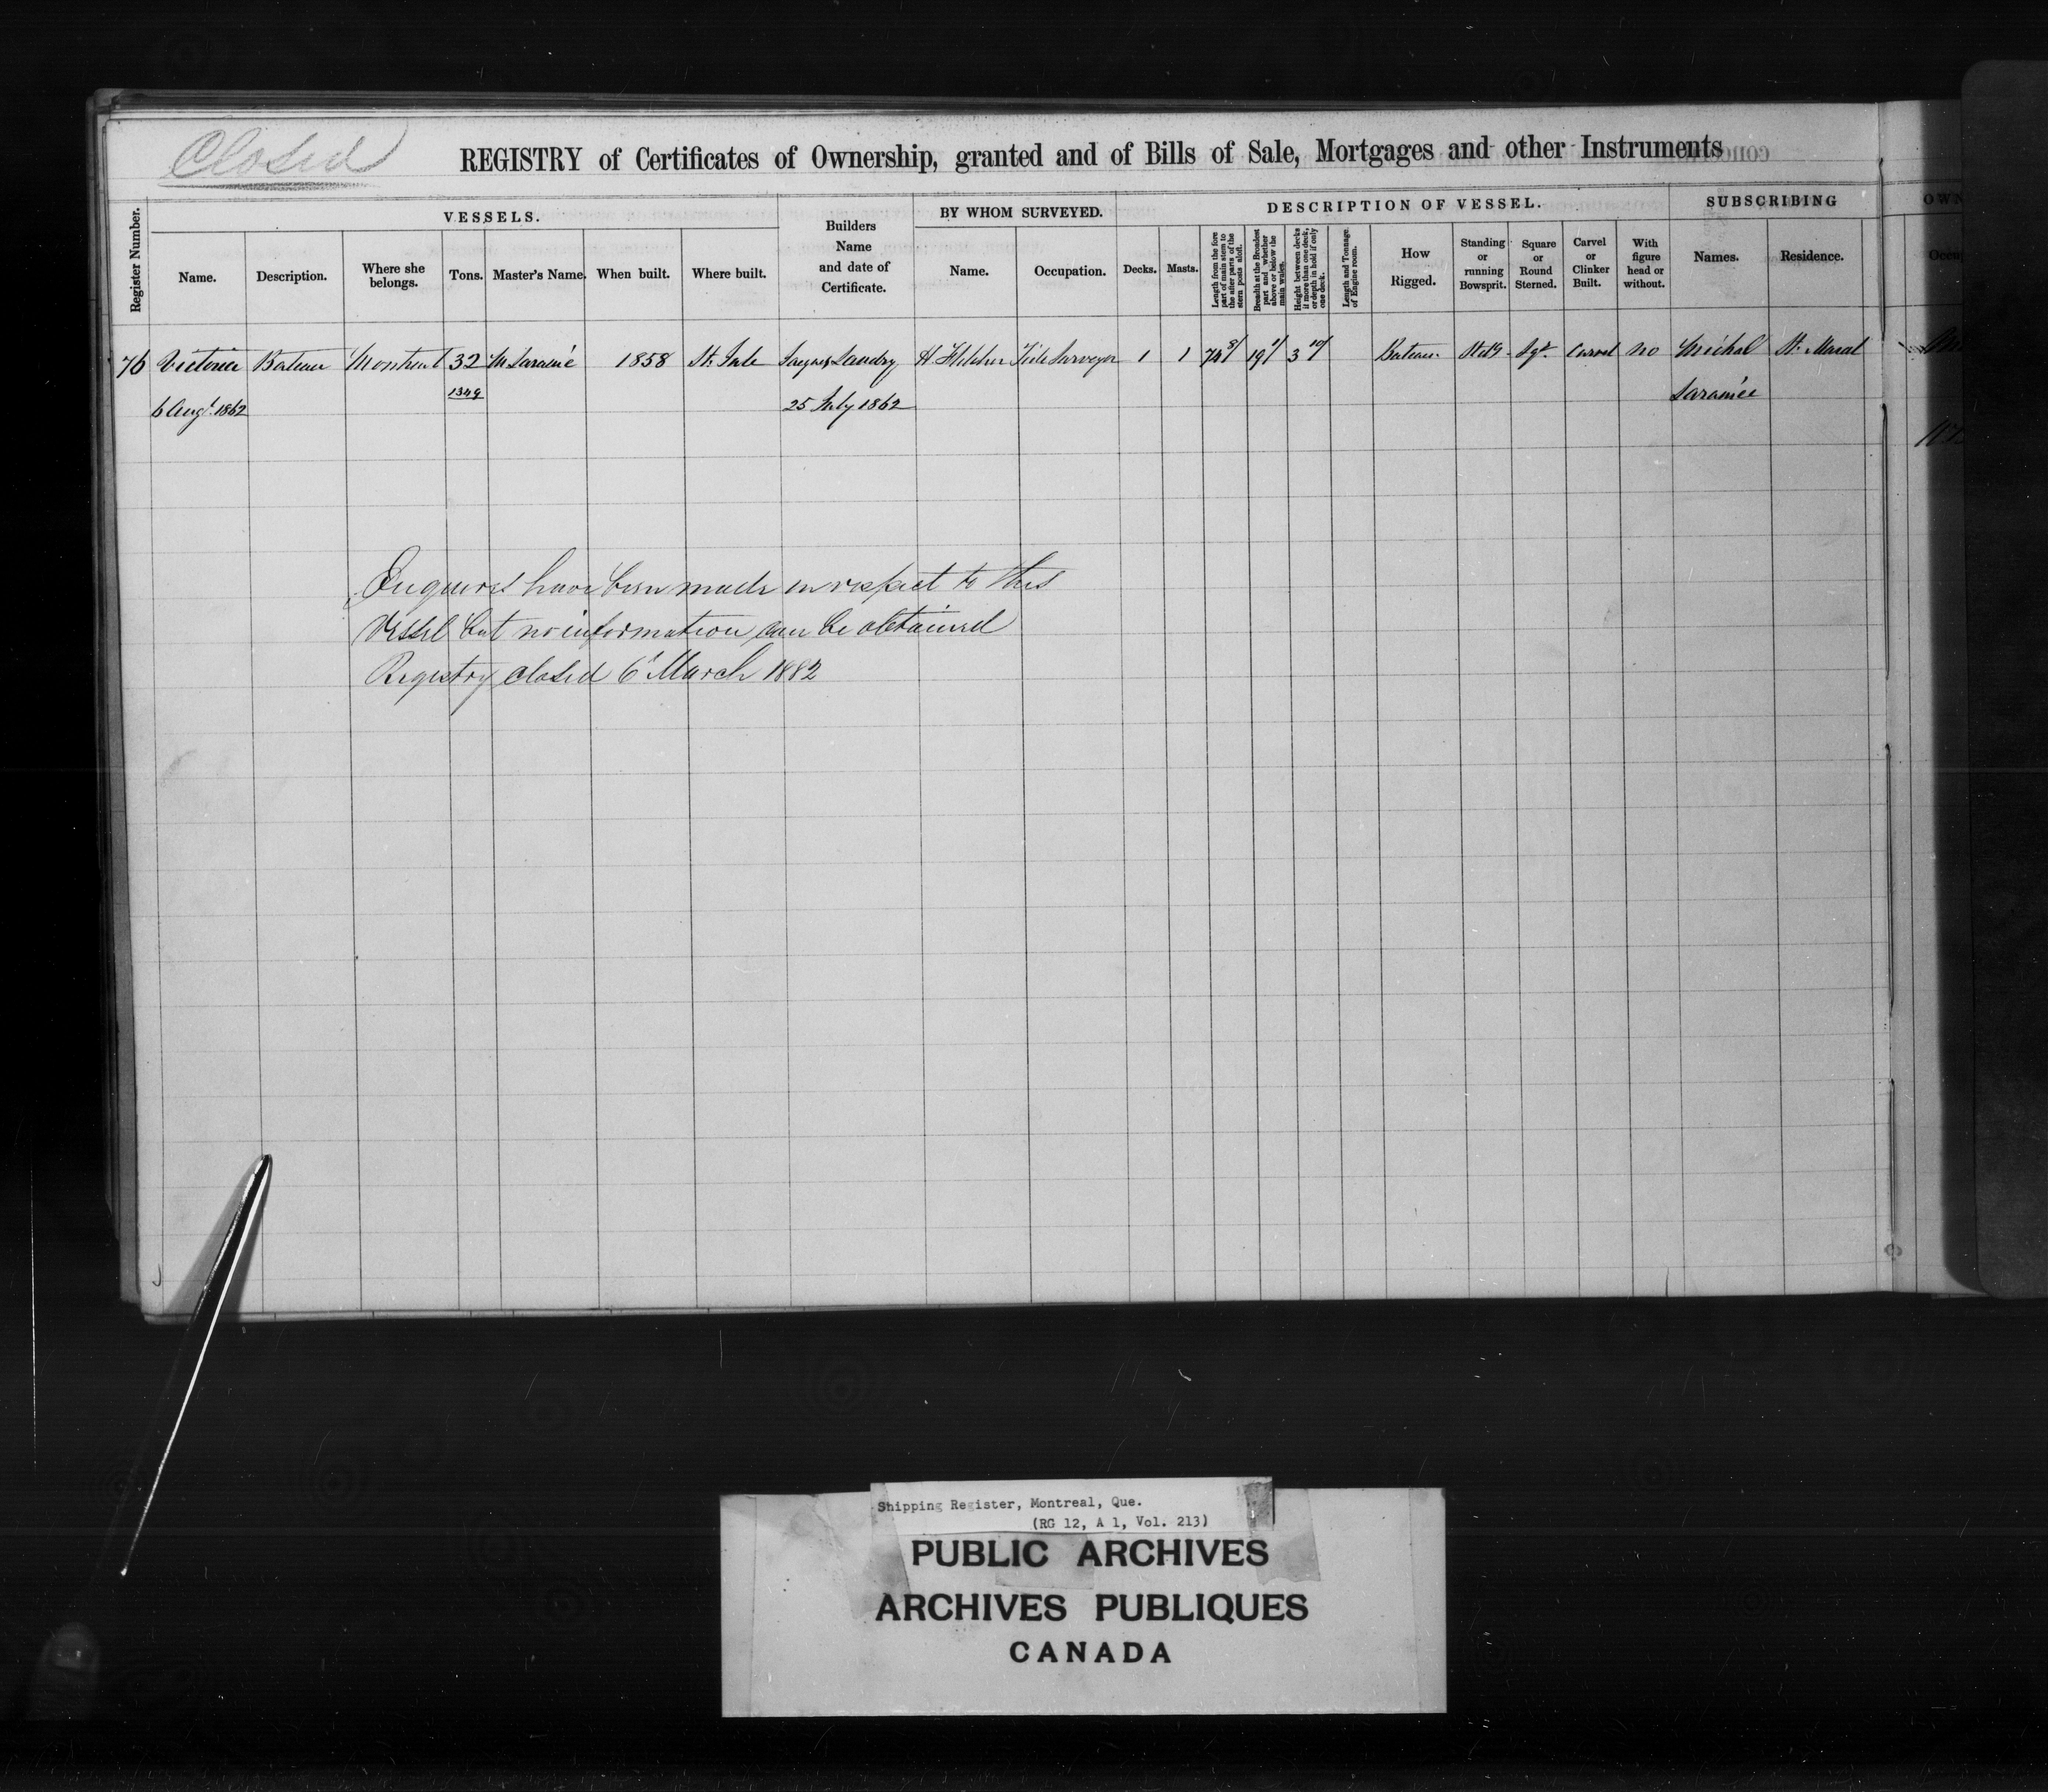 Closed
REGISTRY of Certificates of Ownership, granted and of Bills of Sale, Mortgages and other Instruments
Register Number.
VESSELS.
Name.
Description.
Where she belongs.
Tons.
Master's Name.
When built.
Where built.
Builders Name and date of Certificate.
BY WHOM SURVEYED.
Name.
Occupation.
DESCRIPTION OF VESSEL.
Decks.
Masts.
Length from the fore part of main stem to the after parts of the stern posts aloft.
Breadth at the Broadest part and whether above or below the main wales.
Height between decks if more than one deck, or depth in hold if only one deck.
Length and Tonnage of Engine room.
How Rigged.
Standing or running Bowsprit.
Square or Round Sterned.
Carvel or Clinker Built.
With figure head or without.
SUBSCRIBING
Names.
Residence.
OWN
Occu
76 Victoria Bateau Montreal 32 M 1858 St. Landry H. Fletcher Tide Surveyor 1 1 74 8/ 19 1/ 3 10/ Bateau Stdg Sqr. Carvel no Michel St.
6 Augt. 1862 1349 25 July 1862
Enquires have been made in respect to this
Vessel but no information can be obtained
Registry closed 6 March 1882
Shipping Register, Montreal, Que.
(RG 12, A 1, Vol. 213)
PUBLIC ARCHIVES
ARCHIVES PUBLIQUES
CANADA